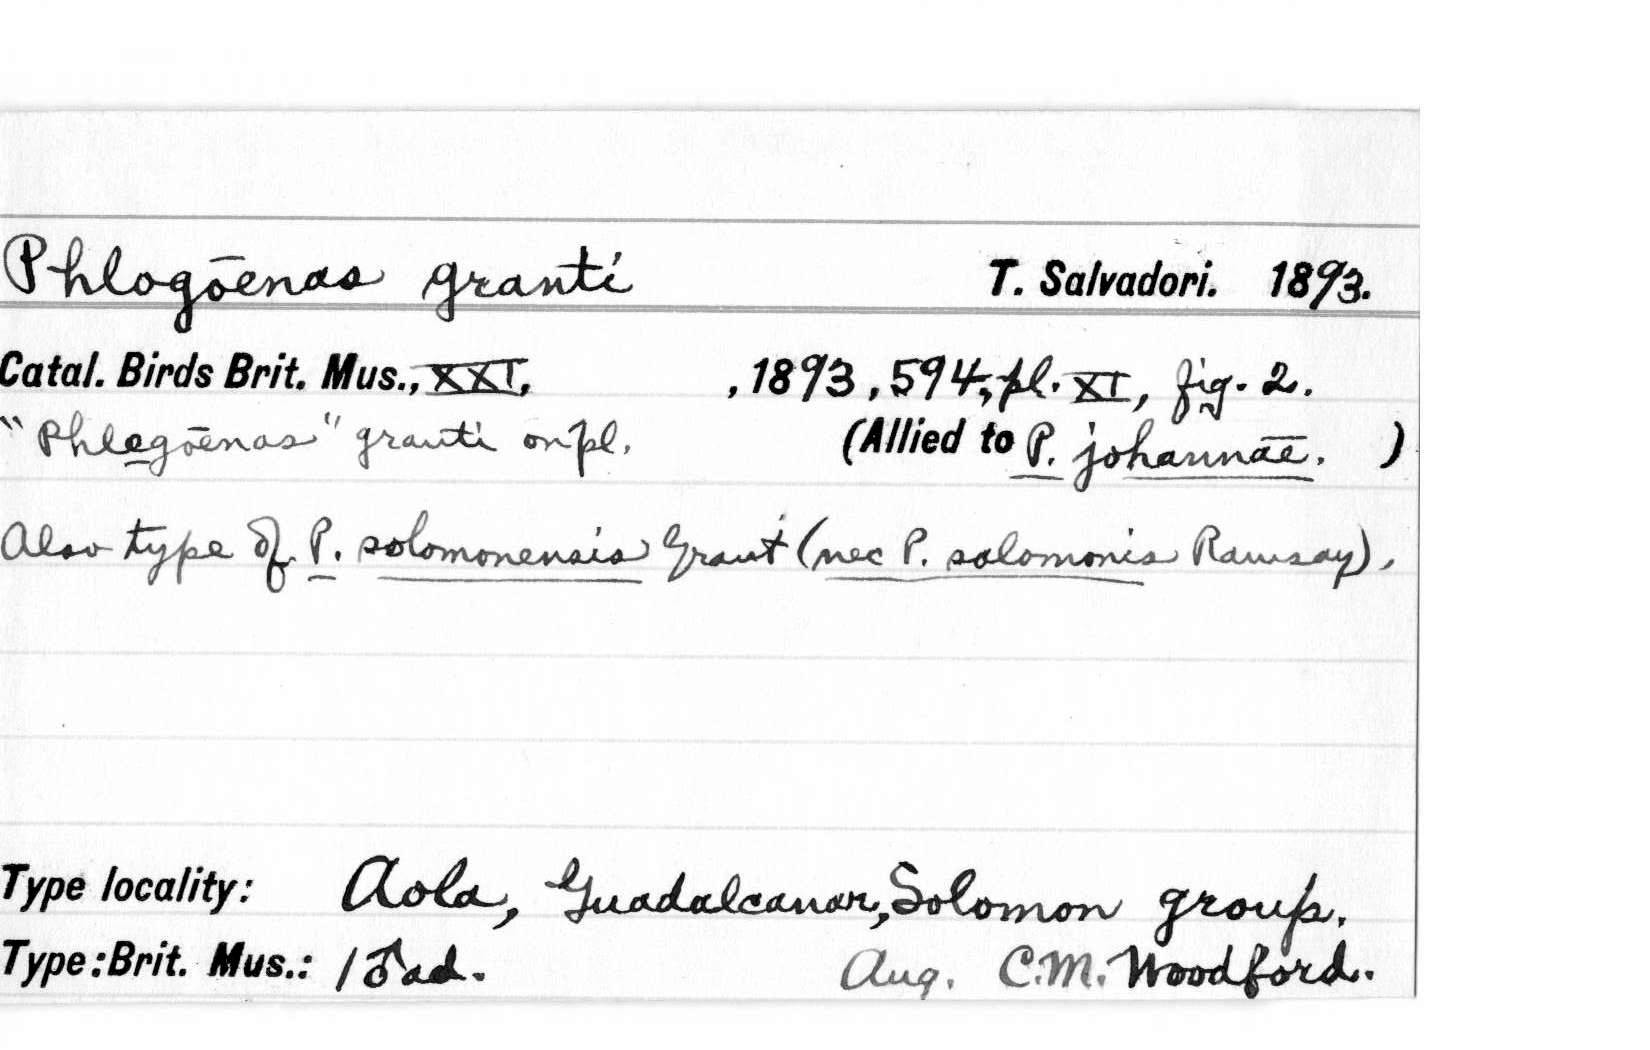 Phlogōenas granti T. Salvadori. 1893.
Catal. Birds Brit. Mus., XXI, , 1893, 594, pl. XI, fig. 2.
"Phlegōenas" granti on pl. (Allied to P. johannāē. )
Also type of P. solomonensis Grant (nec P. salomonis Ramsay).
Type locality: Aola, Guadalcanar, Solomon group.
Type: Brit. Mus.: 1 ♂ ad. Aug. C.M. Woodford.